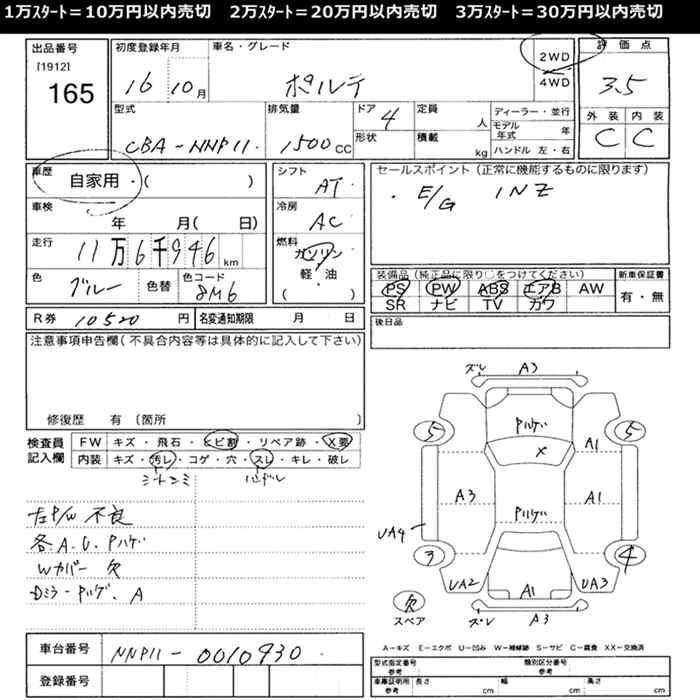 1万ｽﾀｰﾄ＝10万円以内売切　2万ｽﾀｰﾄ＝20万円以内売切　3万ｽﾀｰﾄ＝30万円以内売切
出品番号
[1912]
165
初度登録年月
16 10月
車名・グレード
ポルテ
2WD
4WD
評価点
3.5
外装 内装
C C
型式
CBA-NNP11
排気量
1500CC
ドア 4
形状
定員 人
積載 kg
ディーラー・並行
モデル年式 年
ハンドル 左・右
車歴
自家用・( )
車検
年 月( 日)
走行
11万6千946km
色
ブルー
色替
色コード
8M6
シフト
AT
冷房
AC
燃料
ガソリン
軽・油
( )
セールスポイント (正常に機能するものに限ります)
・E/G 1NZ
装備品 (純正品に限り○をつけてください)
PS PW ABS エアB AW
SR ナビ TV カワ
新車保証書
有・無
後日品
R券 10520円
名変通知期限 月 日
注意事項申告欄(不具合内容等は具体的に記入して下さい)
修復歴 有 〔箇所 〕
検査員
記入欄
FW キズ・飛石・ヒビ割・リペア跡・X要
内装 キズ・汚レ・コゲ・穴・スレ・キレ・破レ
シートシミ ハンドル
左P/W 不良
各A.U.Pハゲ
Wカバー 欠
Dミラー Pハゲ.A
車台番号
NNP11-0010930
登録番号
ズレ A3
5 Pハゲ 5
X A1
A3 A1
Pハゲ
UA4
3 4
UA2 UA3
A1
欠
スペア
ズレ A3
A－キズ E－エクボ U－凹み W－補修跡 S－サビ C－腐食 XX－交換済
型式指定番号
参考
類別区分番号
参考
車庫証明用
参考
長さ cm 幅 cm 高さ cm